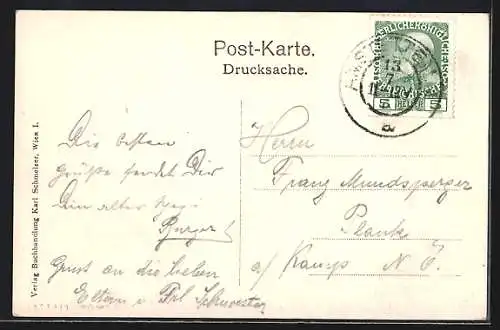 Post-Karte.
Drucksache.
KAISERLICHE KÖNIGLICHE ÖSTERREICHISCHE
5 HELLER 5
13
7
a
Verlag Buchhandlung Karl Schmelzer, Wien I.
Die besten
Grüße sendet Dir
Dein alter
Gruss an die lieben
Eltern u. Frl Schwester
Herrn
Franz Mundsperger
Plank
a/ Kamp N. Ö.